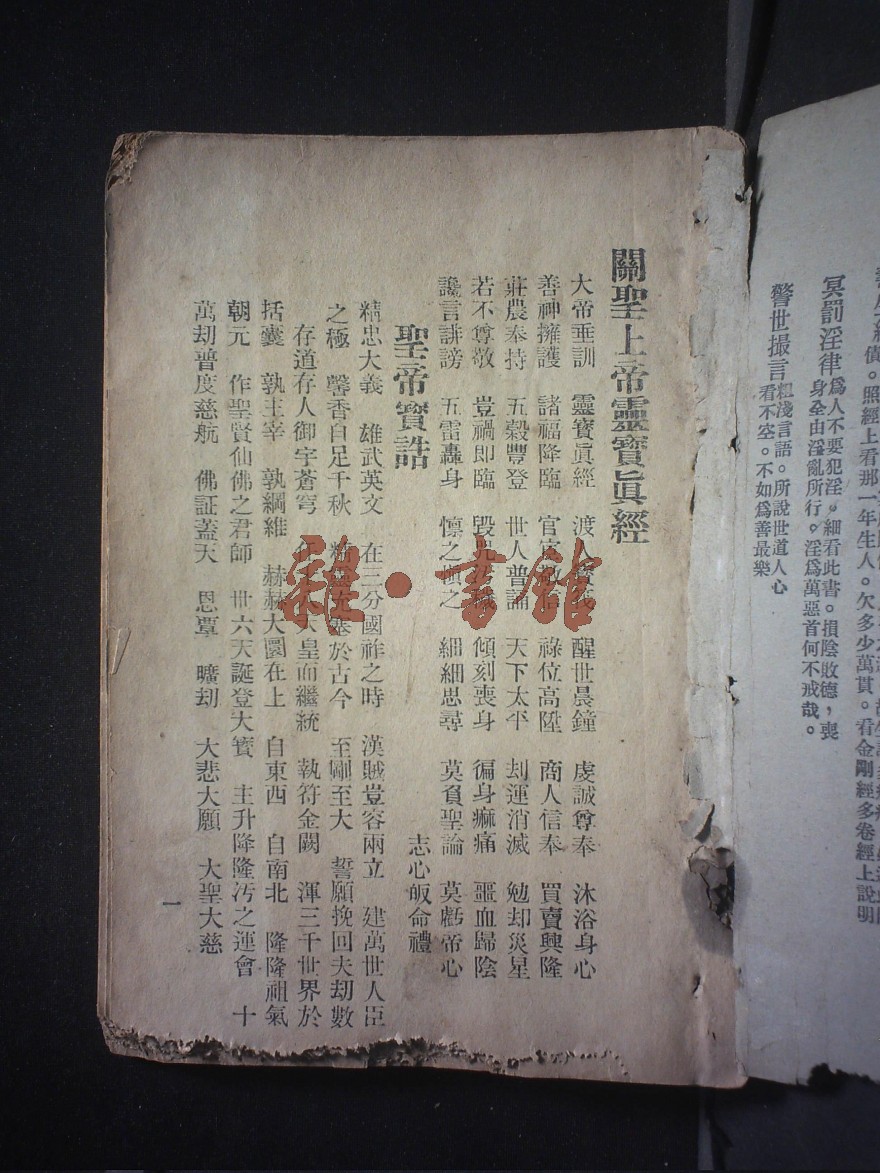 善神擁護　諸福降臨　官
警世撮言粗淺言語。所說世道人心
看不空。不如爲善最樂
冥罰淫律爲人不要犯淫。細看此書。損陰敗德，喪
身全由淫亂所行。淫爲萬惡首何不戒哉。
照經上看那一年生人。欠多少萬貫。看金剛經多卷經上說明
關聖上帝靈寶眞經
大帝垂訓　靈寶眞經　渡人寶筏　醒世晨鐘　虔誠尊奉　沐浴身心
善神擁護　諸福降臨　祿位高陞　商人信奉　買賣興隆
莊農奉持　五穀豐登　世人普誦　天下太平　刦運消滅　勉却災星
若不尊敬　豈禍即臨　傾刻喪身　徧身痲痛　噩血歸陰
讒言誹謗　五雷轟身　懍之愼之　細細思尋　莫負聖論　莫虧帝心
聖帝寶誥
志心皈命禮
精忠大義　雄武英文　在三分國祚之時　漢賊豈容兩立　建萬世人臣
之極　馨香自足千秋　於古今　至剛至大　誓願挽回夫劫數
存道存人御宇蒼穹　天皇而繼統　執符金闕　渾三千世界於
括囊　孰主宰　孰綱維　赫赫大圜在上　自東西　自南北　隆隆祖氣
朝元　作聖賢仙佛之君師　卅六天誕登大寶　主升降隆汚之運會　十
萬劫普度慈航　佛証蓋天　恩覃　曠劫　大悲大願　大聖大慈
一
雜·書館